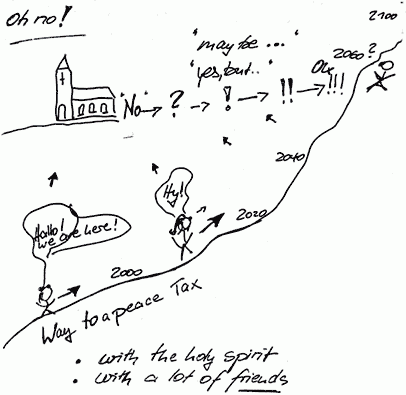 Oh no!
2100
"may be ..."
"yes, but.."
2060?
"No" → ? → ! → !! → !!!
Ok
2040
Hallo!
we are here!
Hy!
2020
2000
Way to a peace Tax
• with the holy spirit
• with a lot of friends